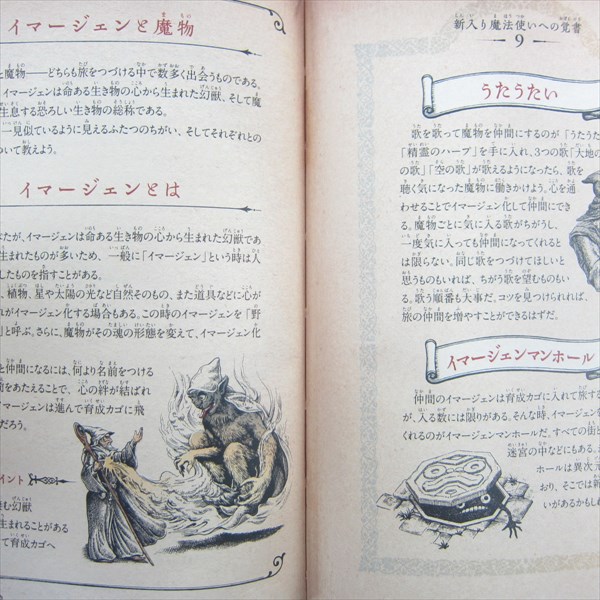 イマージェンと魔物
た魔物――どちらも旅をつづける中で数多く出会うものである。
イマージェンは命ある生き物の心から生まれた幻獣、そして魔
生息する恐ろしい生き物の総称である。
一見似ているように見えるふたつのちがい、そしてそれぞれとの
ついて教えよう。
イマージェンとは
たが、イマージェンは命ある生き物の心から生まれた幻獣であ
生まれたものが多いため、一般に「イマージェン」という時は人
したものを指すことがある。
、植物、星や太陽の光など自然そのもの、また道具などに心が
れがイマージェン化する場合もある。この時のイマージェンを「野
と呼ぶ。さらに、魔物がその魂の形態を変えて、イマージェン化
と仲間になるには、何より名前をつける
前をあたえることで、心の絆が結ばれ
イマージェンは進んで育成カゴに飛
だろう。
イント
む幻獣
生まれることがある
て育成カゴへ
新入り魔法使いへの覚書
9
うたうたい
歌を歌って魔物を仲間にするのが「うたうた
「精霊のハープ」を手に入れ、3つの歌「大地の
の歌」「空の歌」が歌えるようになったら、歌を
聴く気になった魔物に働きかけよう。心を通
わせることでイマージェン化して仲間にでき
る。魔物ごとに気に入る歌がちがうし、
一度気に入っても仲間になってくれると
は限らない。同じ歌をつづけてほしいと
思うものもいれば、ちがう歌を望むものもい
る。歌う順番も大事だ。コツを見つけられれば、
旅の仲間を増やすことができるはずだ。
イマージェンマンホール
仲間のイマージェンは育成カゴに入れて旅する
が、入る数には限りがある。そんな時、イマージェンを
くれるのがイマージェンマンホールだ。すべての街と
迷宮の中などにもある。
ホールは異次元
おり、そこでは新
いがあるかもし